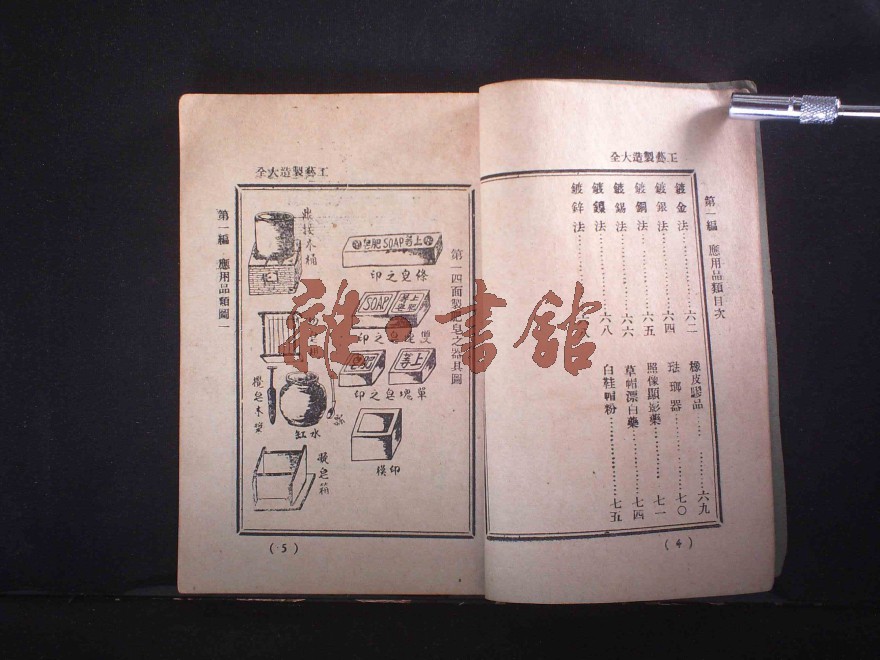 工藝製造大全
第一編 應用品類目次
鍍金法……六二
鍍銀法……六四
鍍銅法……六五
鍍錫法……六六
鍍鎳法
鍍鋅法……六八
橡皮膠品……六九
琺瑯器……七〇
照像顯影藥……七一
草帽漂白藥……七四
白鞋帽粉……七五
(4)
工藝製造大全
第一四面製肥皂之器具圖
上等SOAP肥皂
條皂之印
上等肥皂
SOAP
雙塊皂之印
上等
肥皂
單塊皂之印
印模
木桶
水缸
攪皂木槳
箱
第一編 應用品類圖一
(5)
雜·書館